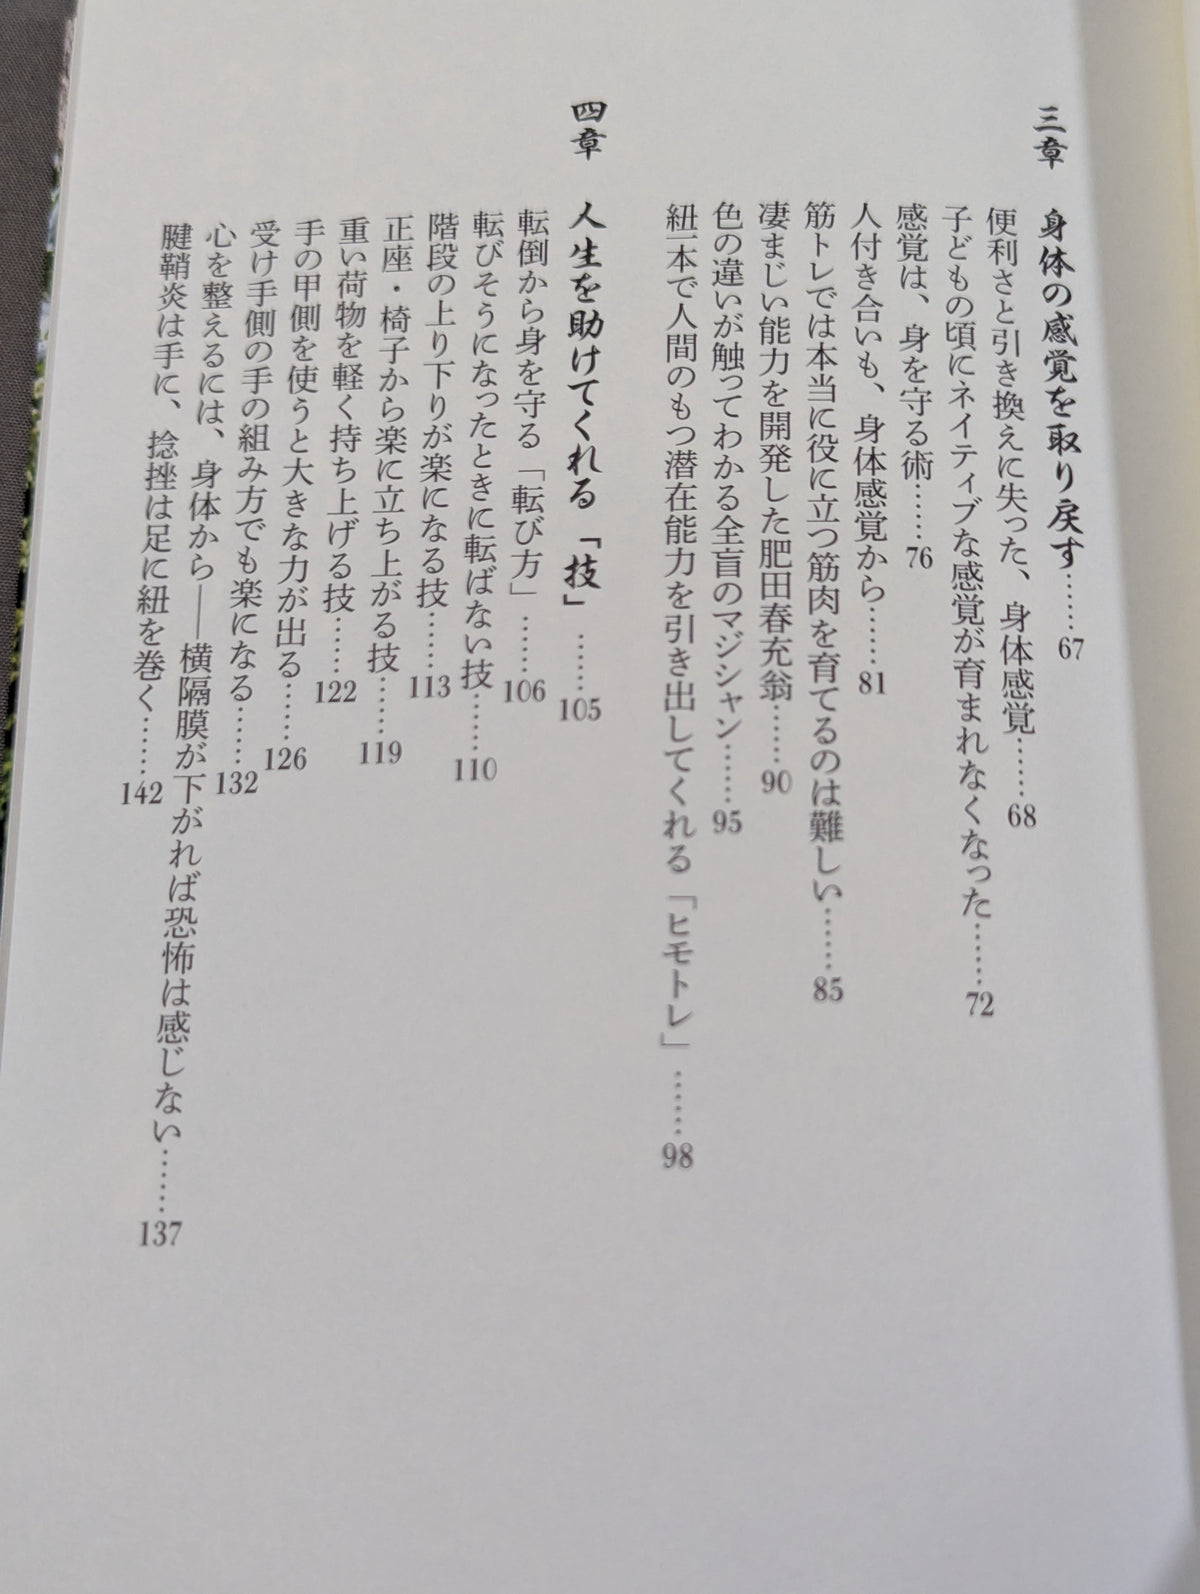 三章 身体の感覚を取り戻す……67
便利さと引き換えに失った、身体感覚……68
子どもの頃にネイティブな感覚が育まれなくなった……72
感覚は、身を守る術……76
人付き合いも、身体感覚から……81
筋トレでは本当に役に立つ筋肉を育てるのは難しい……85
凄まじい能力を開発した肥田春充翁……90
色の違いが触ってわかる全盲のマジシャン……95
紐一本で人間のもつ潜在能力を引き出してくれる「ヒモトレ」……98
四章 人生を助けてくれる「技」……105
転倒から身を守る「転び方」……106
転びそうになったときに転ばない技……110
階段の上り下りが楽になる技……113
正座・椅子から楽に立ち上がる技……119
重い荷物を軽く持ち上げる技……122
手の甲側を使うと大きな力が出る……126
受け手側の手の組み方でも楽になる……132
心を整えるには、身体から——横隔膜が下がれば恐怖は感じない……137
腱鞘炎は手に、捻挫は足に紐を巻く……142